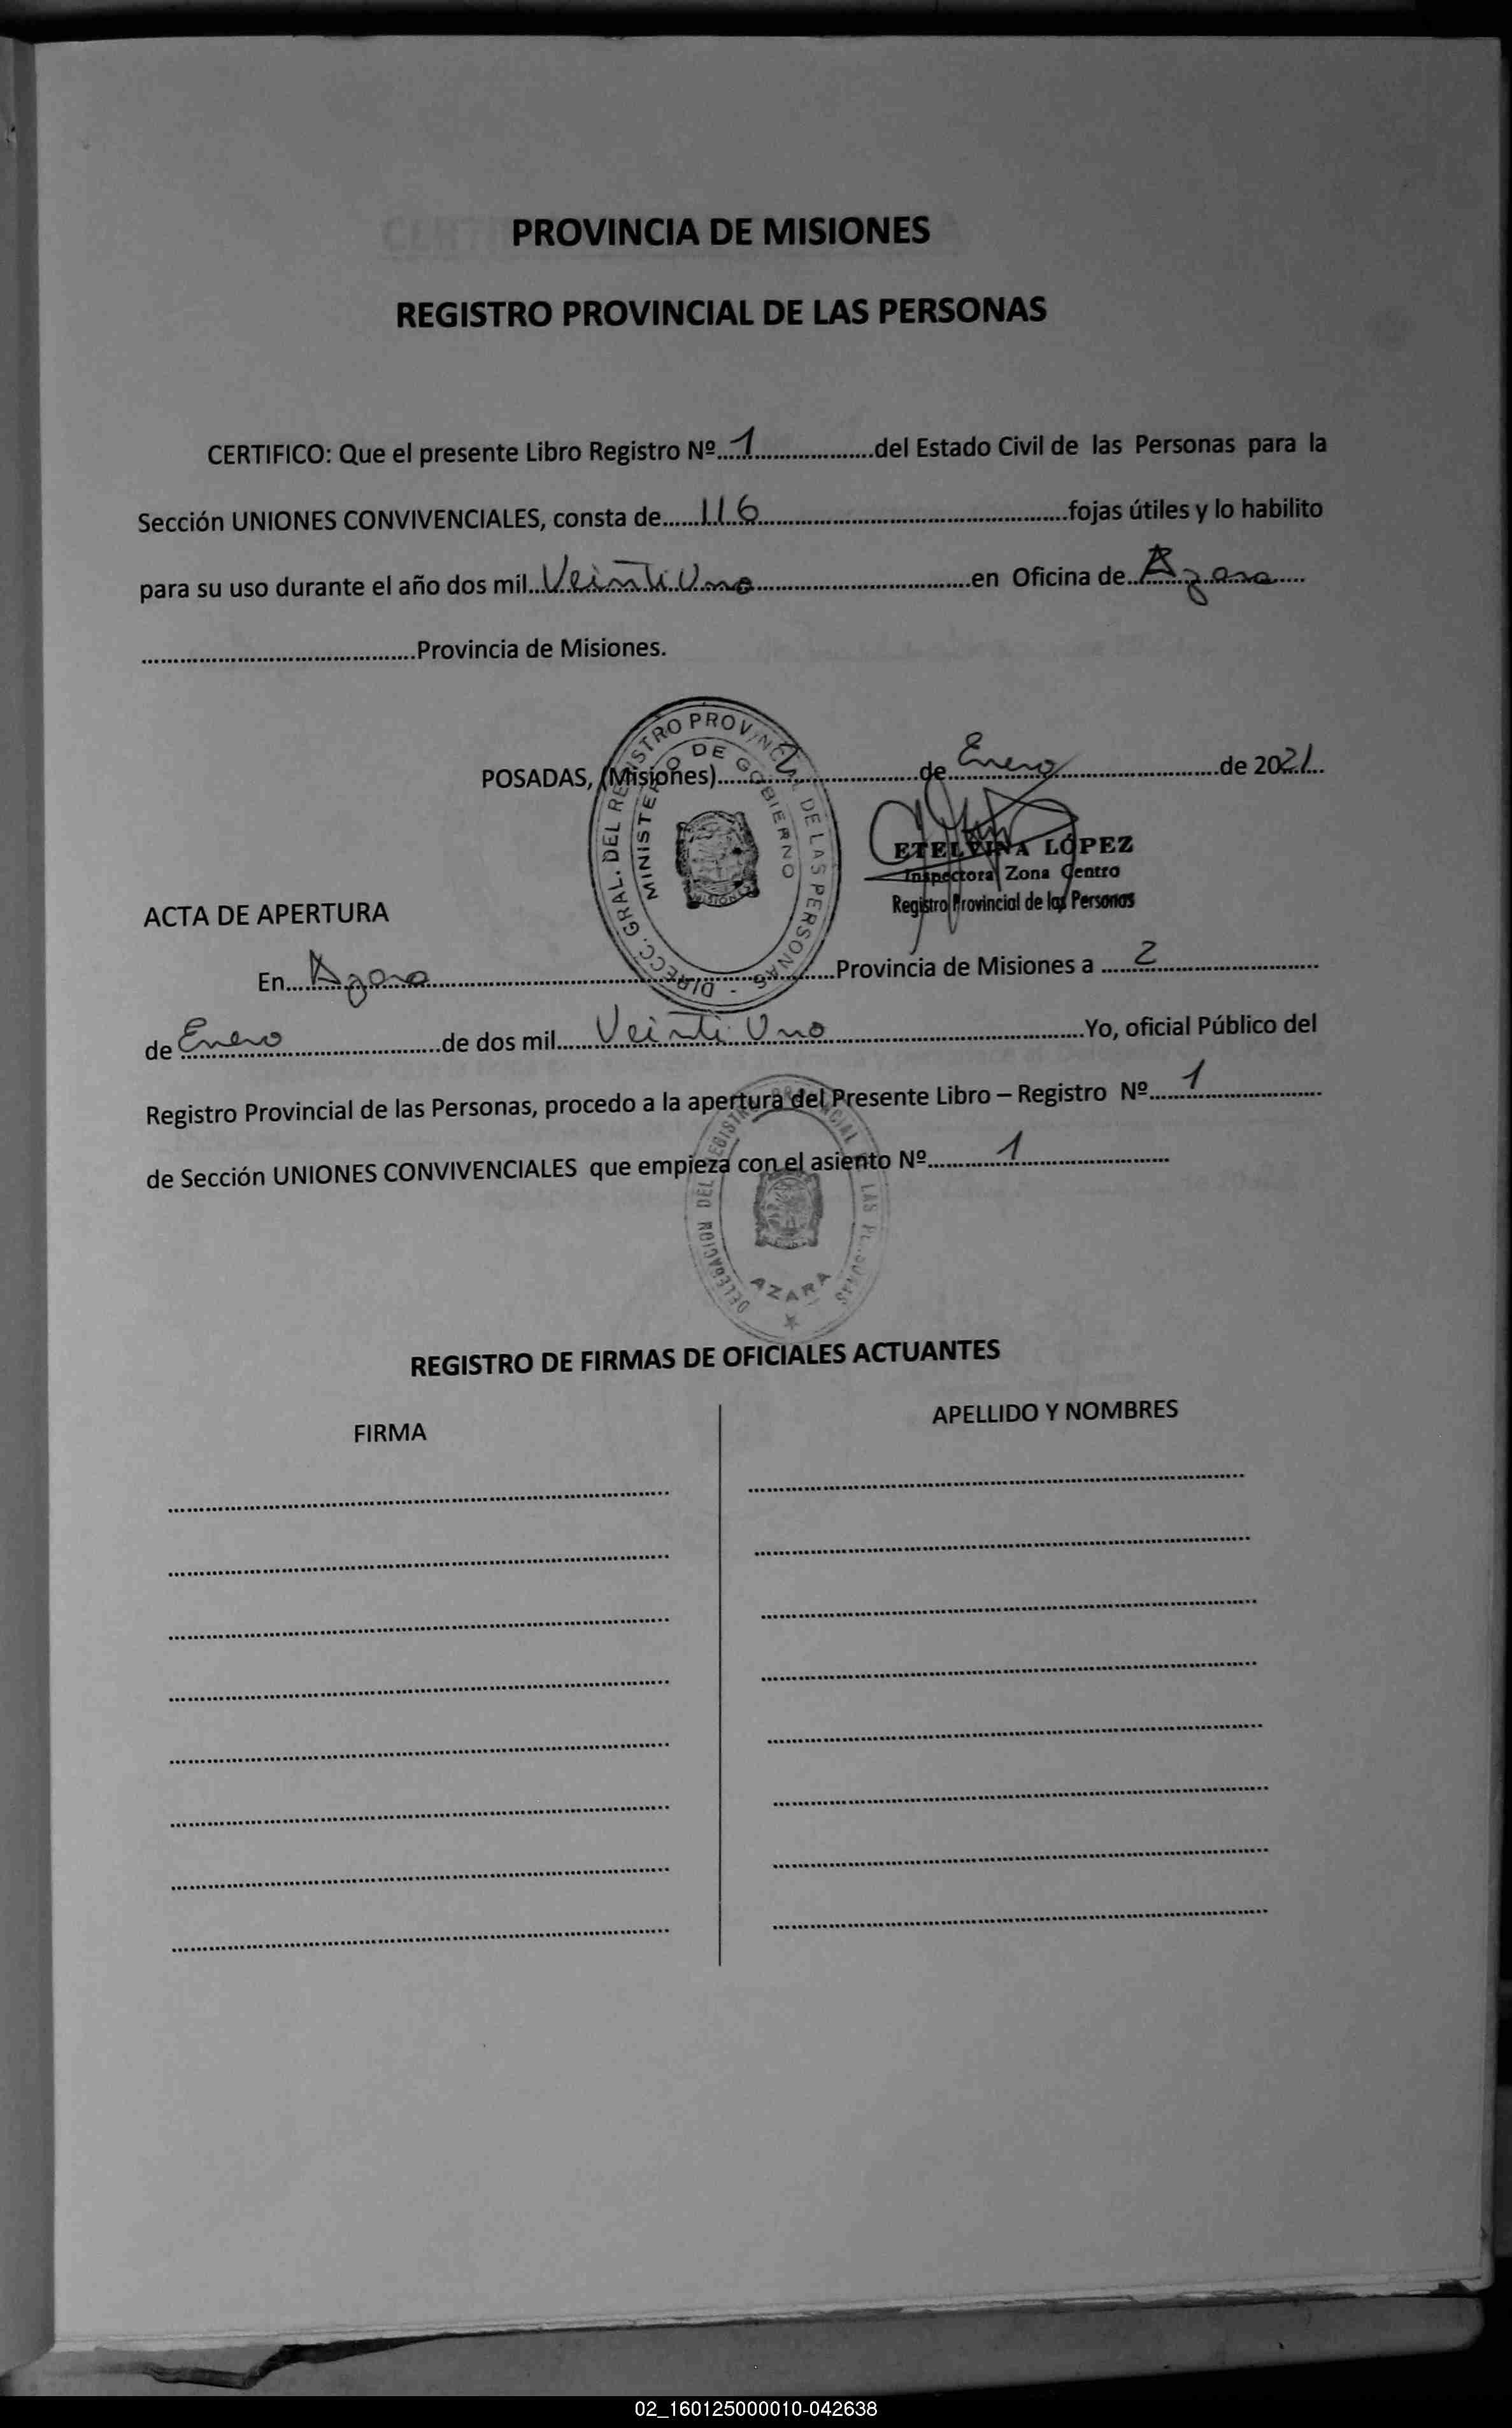 PROVINCIA DE MISIONES
REGISTRO PROVINCIAL DE LAS PERSONAS
CERTIFICO: Que el presente Libro Registro Nº....1....................del Estado Civil de las Personas para la
Sección UNIONES CONVIVENCIALES, consta de......116..................................................fojas útiles y lo habilito
para su uso durante el año dos mil...Veinti Uno...................................en Oficina de..Azara.....
...........................................Provincia de Misiones.
DIRECC. GRAL. DEL REGISTRO PROVINCIAL DE LAS PERSONAS
MINISTERIO DE GOBIERNO
MISIONES
POSADAS, (Misiones)..........2....................de....Enero..........................de 2021....
ETELVINA LÓPEZ
Inspectora Zona Centro
Registro Provincial de las Personas
ACTA DE APERTURA
En....Azara................................................................Provincia de Misiones a ......2..........................
de Enero.........................de dos mil......Veinti Uno.........................................Yo, oficial Público del
Registro Provincial de las Personas, procedo a la apertura del Presente Libro – Registro Nº......1...................
de Sección UNIONES CONVIVENCIALES que empieza con el asiento Nº...........1........................
DELEGACION DEL REGISTRO PROVINCIAL LAS PERSONAS
AZARA
REGISTRO DE FIRMAS DE OFICIALES ACTUANTES
FIRMA
APELLIDO Y NOMBRES
02_160125000010-042638